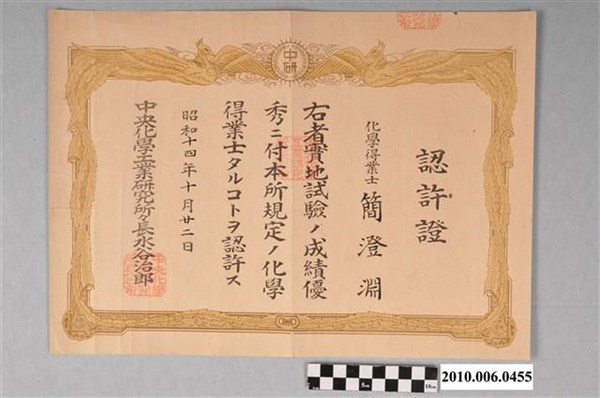 中研
認許證
化學得業士 簡澄淵
右者實地試驗ノ成績優
秀ニ付本所規定ノ化學
得業士タルコトヲ認許ス
昭和十四年十月廿二日
中央化學工業研究所々長水谷治郎
5cm
10cm
2010.006.0455